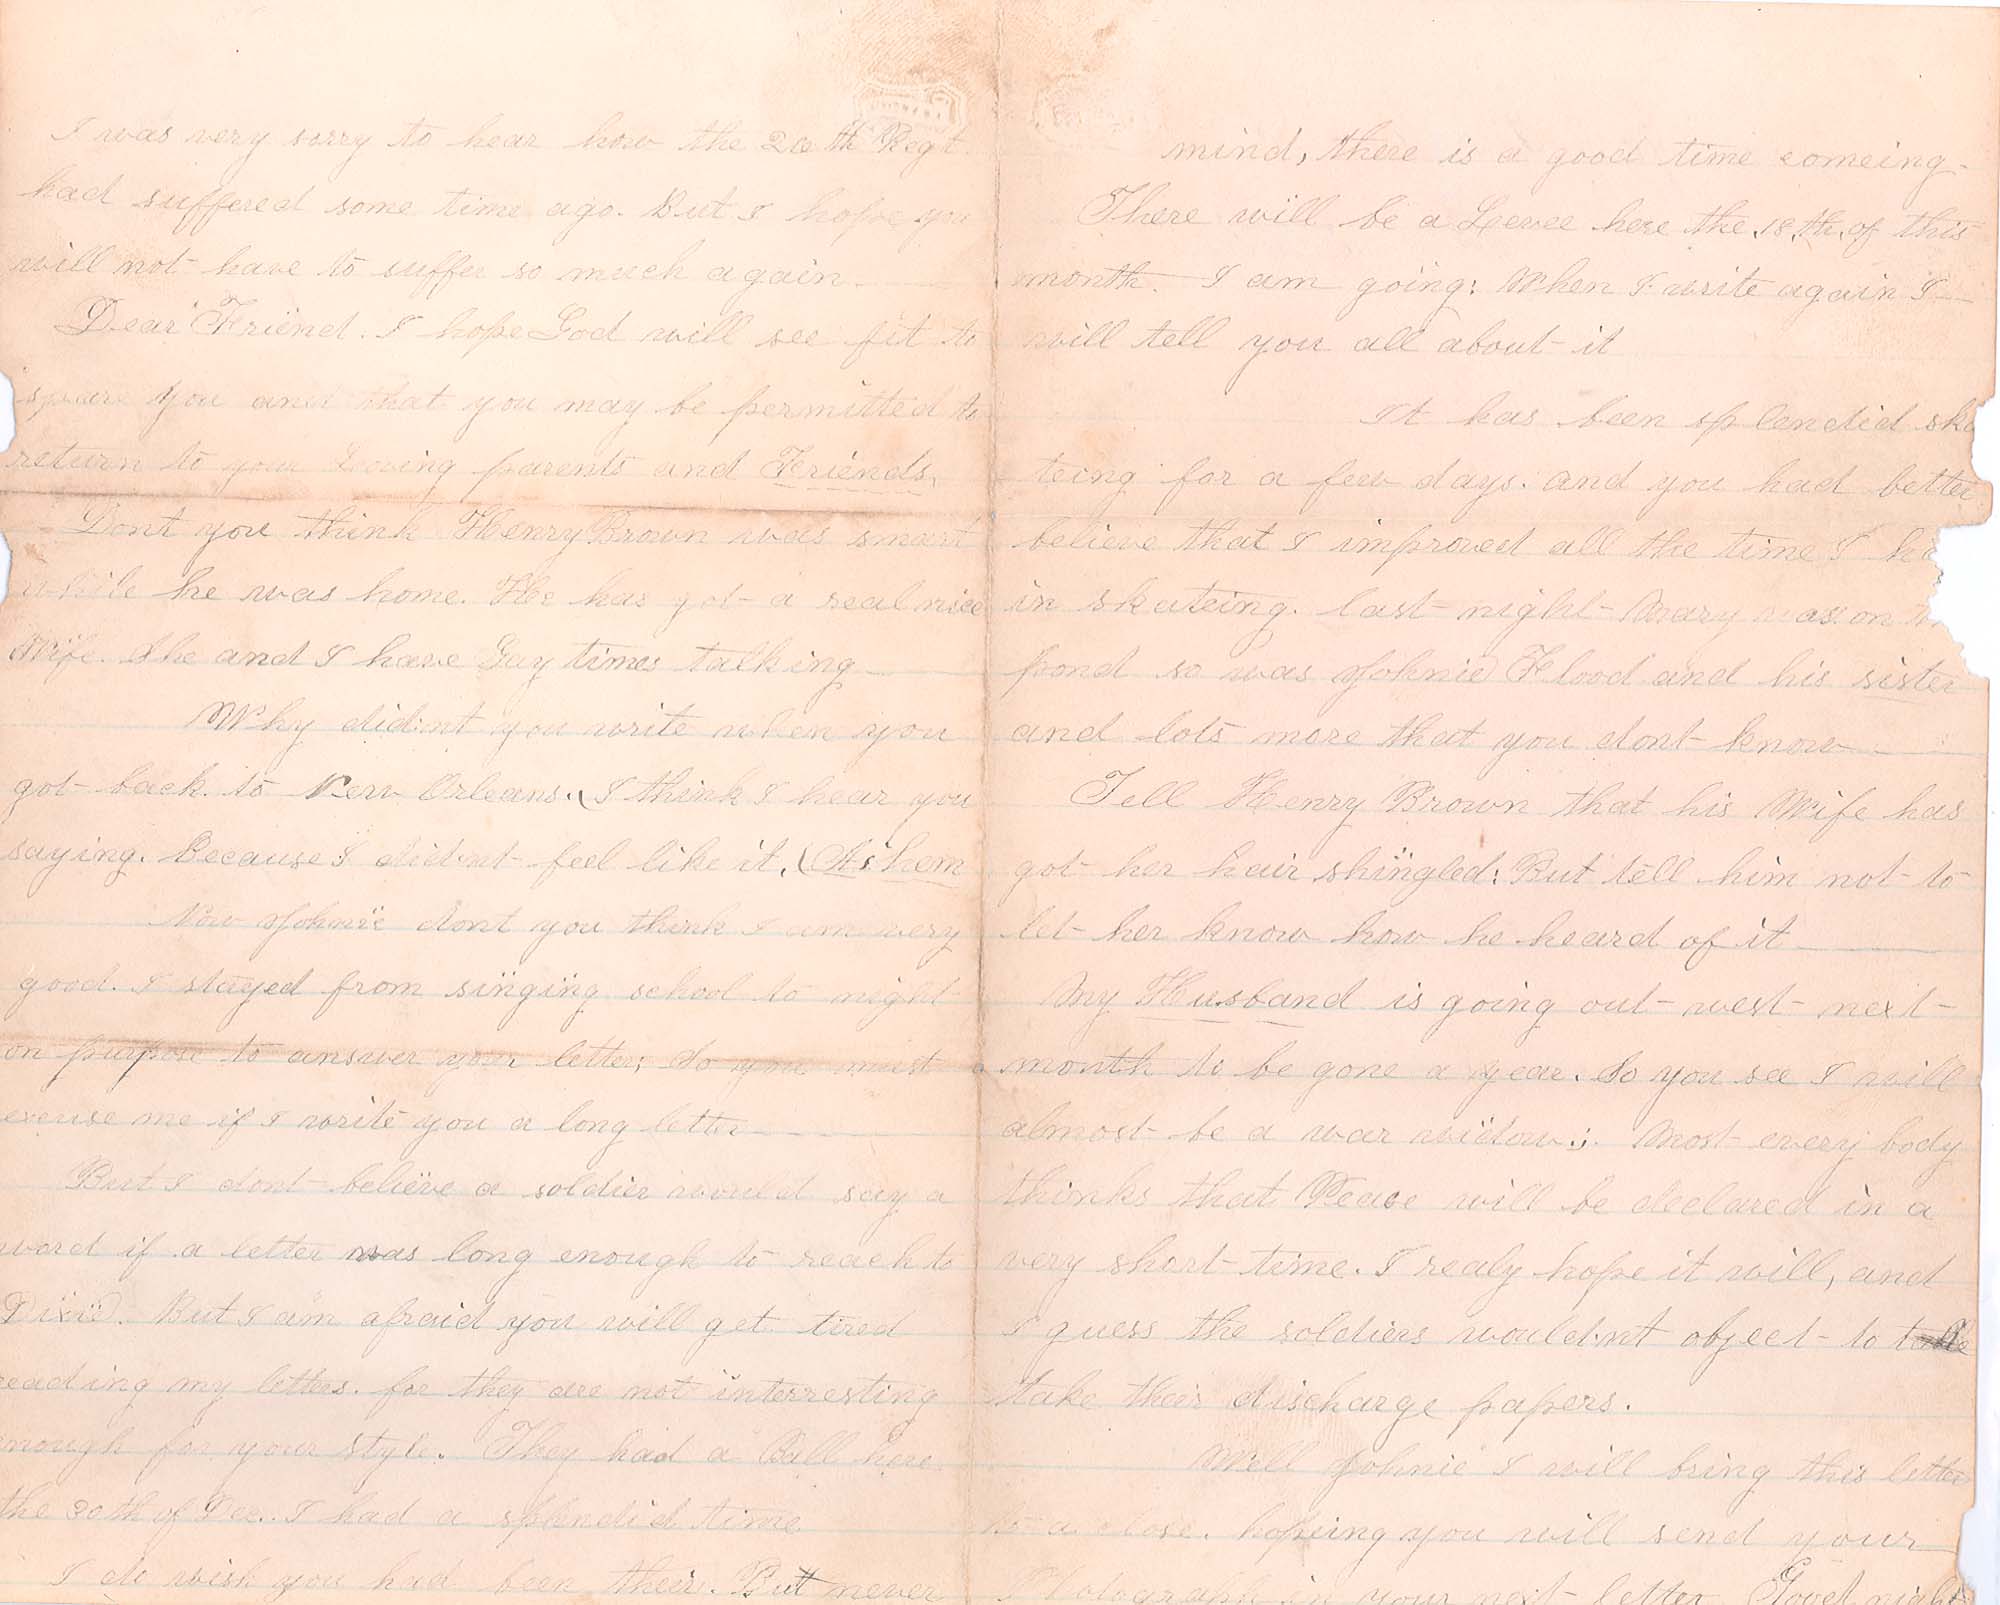 I was very sorry to hear how the 26th Regt.
had suffered some time ago. But I hope you
will not have to suffer so much again.
Dear Friend. I hope God will see fit to
spare you and that you may be permitted to
return to your loving parents and Friends.
Dont you think Henry Brown was smart
while he was home. He has got a real nice
Wife. She and I have Gay times talking
Why did.nt you write when you
got back to New Orleans. (I think I hear you
saying. Because I did.nt feel like it. (Ashem
Now Johnie dont you think I am very
good. I stayed from singing school to night
on purpose to answer your letter; So you must
excuse me if I write you a long letter
But I dont believe a soldier would say a
word if a letter was long enough to reach to
Dixie. But I am afraid you will get tired
reading my letters. for they are not interresting
enough for your style. They had a Ball here
the 30th of Dec. I had a splendid time
I do wish you had been their. But never
mind, there is a good time comeing.
There will be a Levee here the 18.th. of this
month. I am going: When I write again I
will tell you all about it
It has been splendid ska
teing for a few days. and you had better
believe that I improved all the time I ha
in skateing. last night Mary was on
pond so was Johnie Flood and his sister
and lots more that you dont know
Tell Henry Brown that his Wife has
got her hair shingled: But tell him not to
let her know how he heard of it
My Husband is going out west next
month to be gone a year. So you see I will
almost be a war widow; Most every body
thinks that Peace will be declared in a
very short time. I realy hope it will, and
I guess the soldiers would.nt object to
take their discharge papers.
Well Johnie I will bring this letter
to a close. hopeing you will send your
Photograph in your next letter. Good night